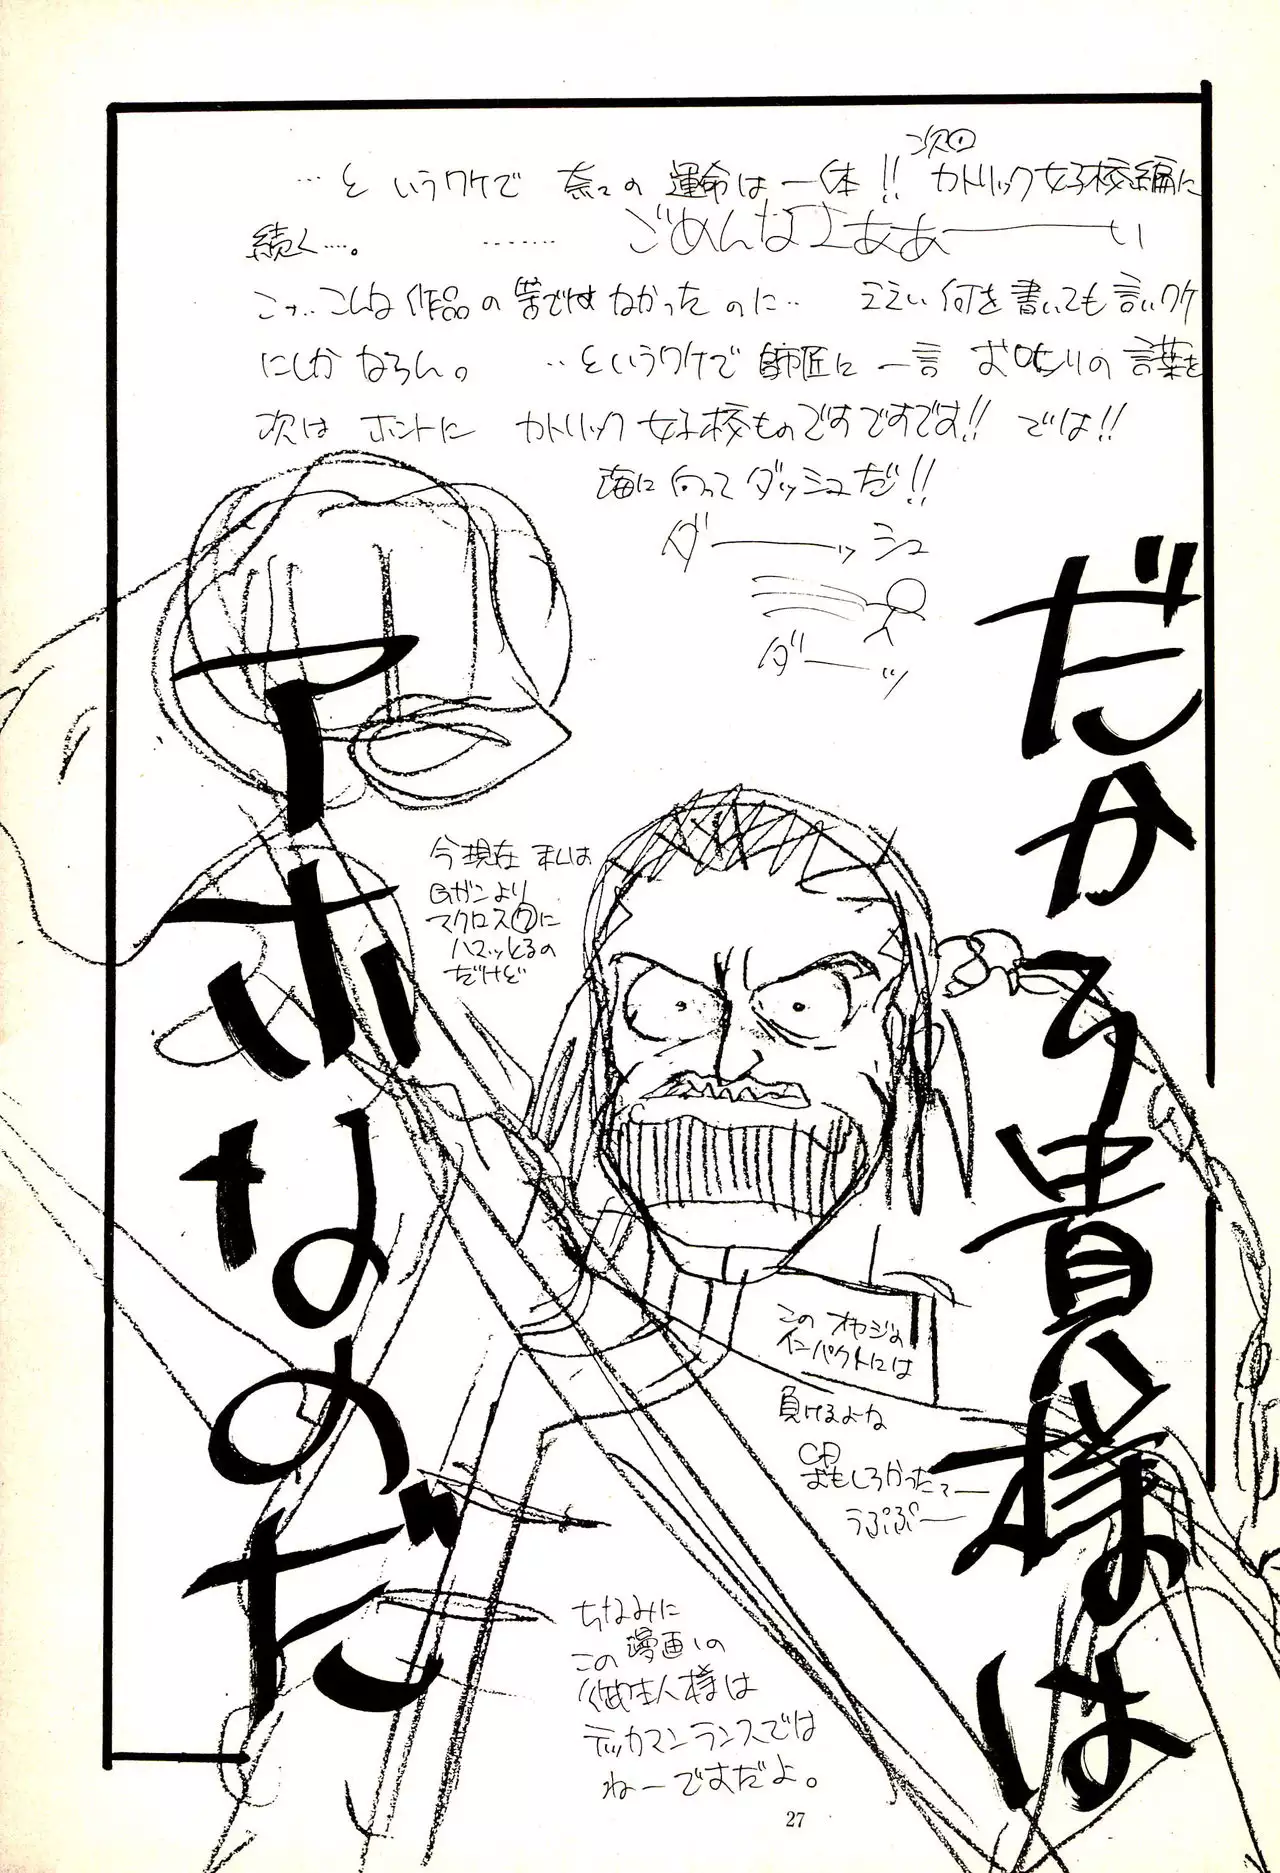 次回
…というワケで 奈々の 運命は 一体!! カトリック女子校編に
続く…。 ……… ごめんなさあぁーーい
こ..こんな作品の筈ではなかったのに.. ええい何を書いても言いワケ
にしかならん。 …というワケで 師匠に 一言 お叱りの 言葉を
次は ホントに カトリック 女子校ものですですです!! では!!
海に向ってダッシュだ!!
ダーーーッシュ
ダーッ
だから貴様は
アホなのだ
今現在 私は
Gガンより
マクロス7に
ハマッとるの
だけど
この オヤジの
インパクトには
負けるよな
CD
おもしろかったてー
うぷぷー
ちなみに
この漫画の
御主人様は
テッカマンランスでは
ねーですだよ。
27